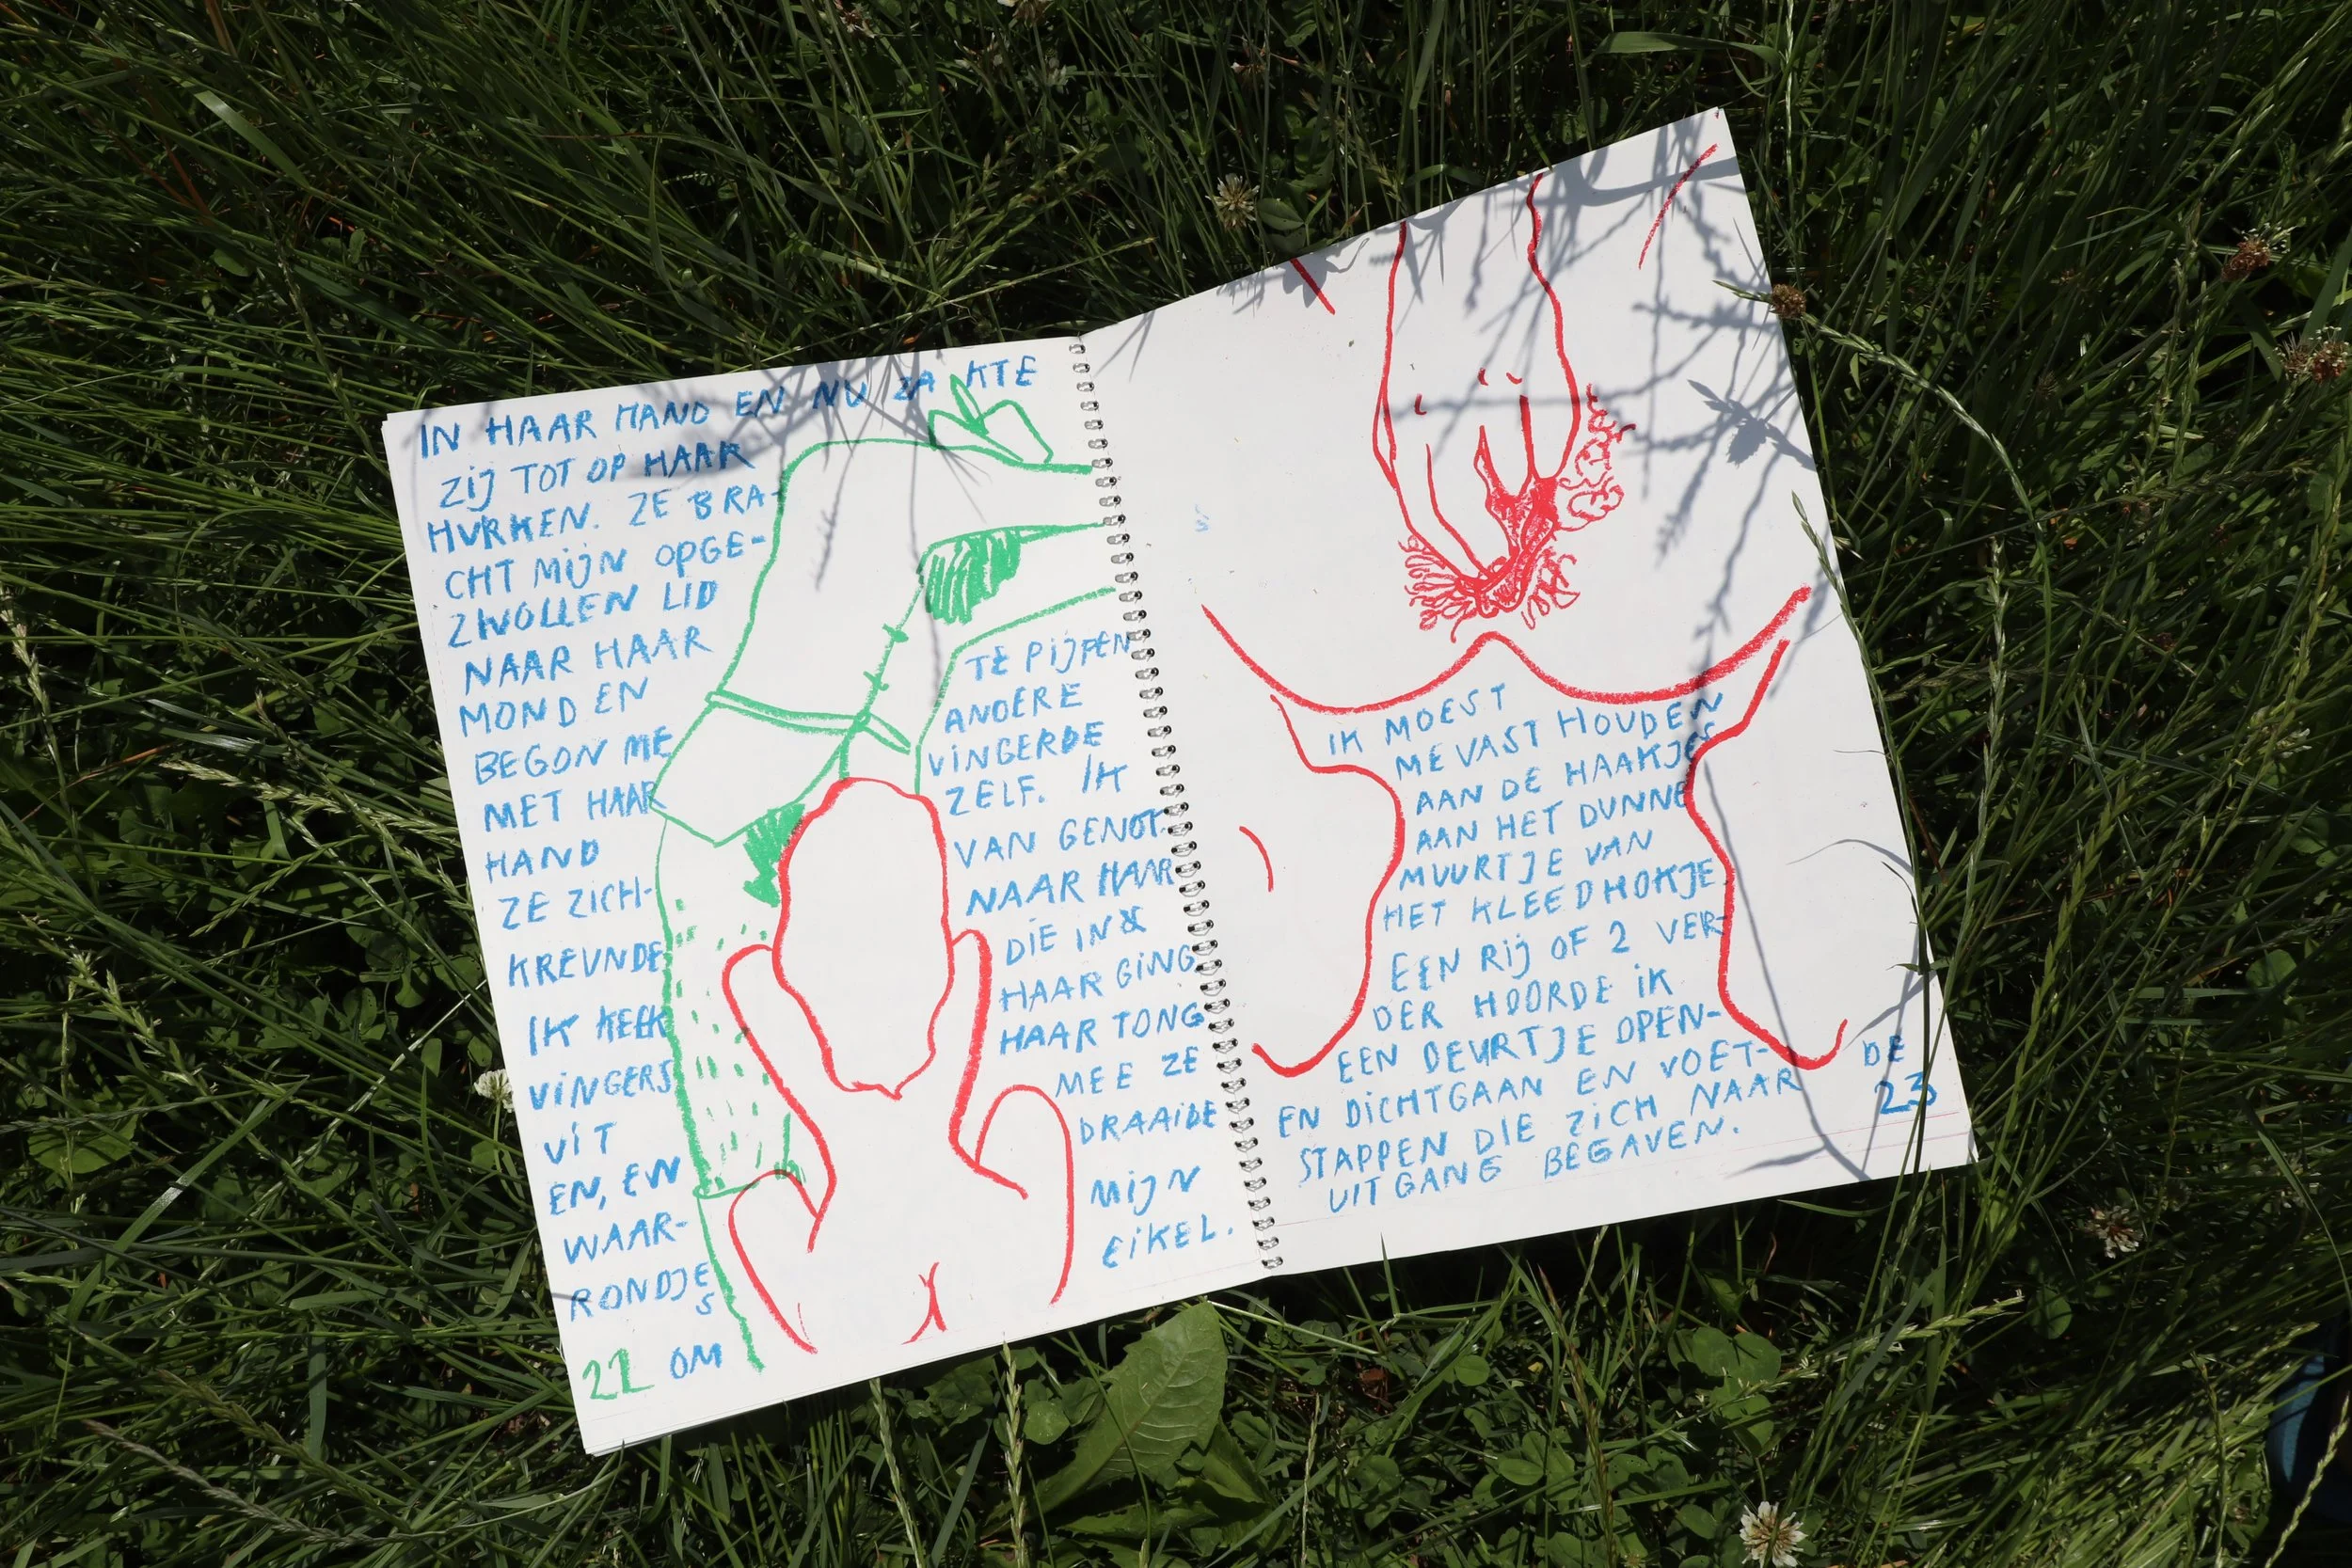 IN HAAR HAND EN NU ZAKTE
ZIJ TOT OP HAAR
HURKEN. ZE BRA-
CHT MIJN OPGE-
ZWOLLEN LID
NAAR HAAR
MOND EN
BEGON ME TE PIJPEN
MET HAAR ANDERE
HAND VINGERDE
ZE ZICH- ZELF. IK
KREUNDE VAN GENOT.
IK KEEK NAAR HAAR
VINGERS DIE IN &
UIT HAAR GING
EN, EN HAAR TONG
WAAR- MEE ZE
RONDJES DRAAIDE
OM MIJN
EIKEL.
22
IK MOEST
ME VAST HOUDEN
AAN DE HAAKJES
AAN HET DUNNE
MUURTJE VAN
HET KLEEDHOKJE
EEN RIJ OF 2 VER-
DER HOORDE IK
EEN DEURTJE OPEN-
EN DICHTGAAN EN VOET-
STAPPEN DIE ZICH NAAR DE
UITGANG BEGAVEN.
23